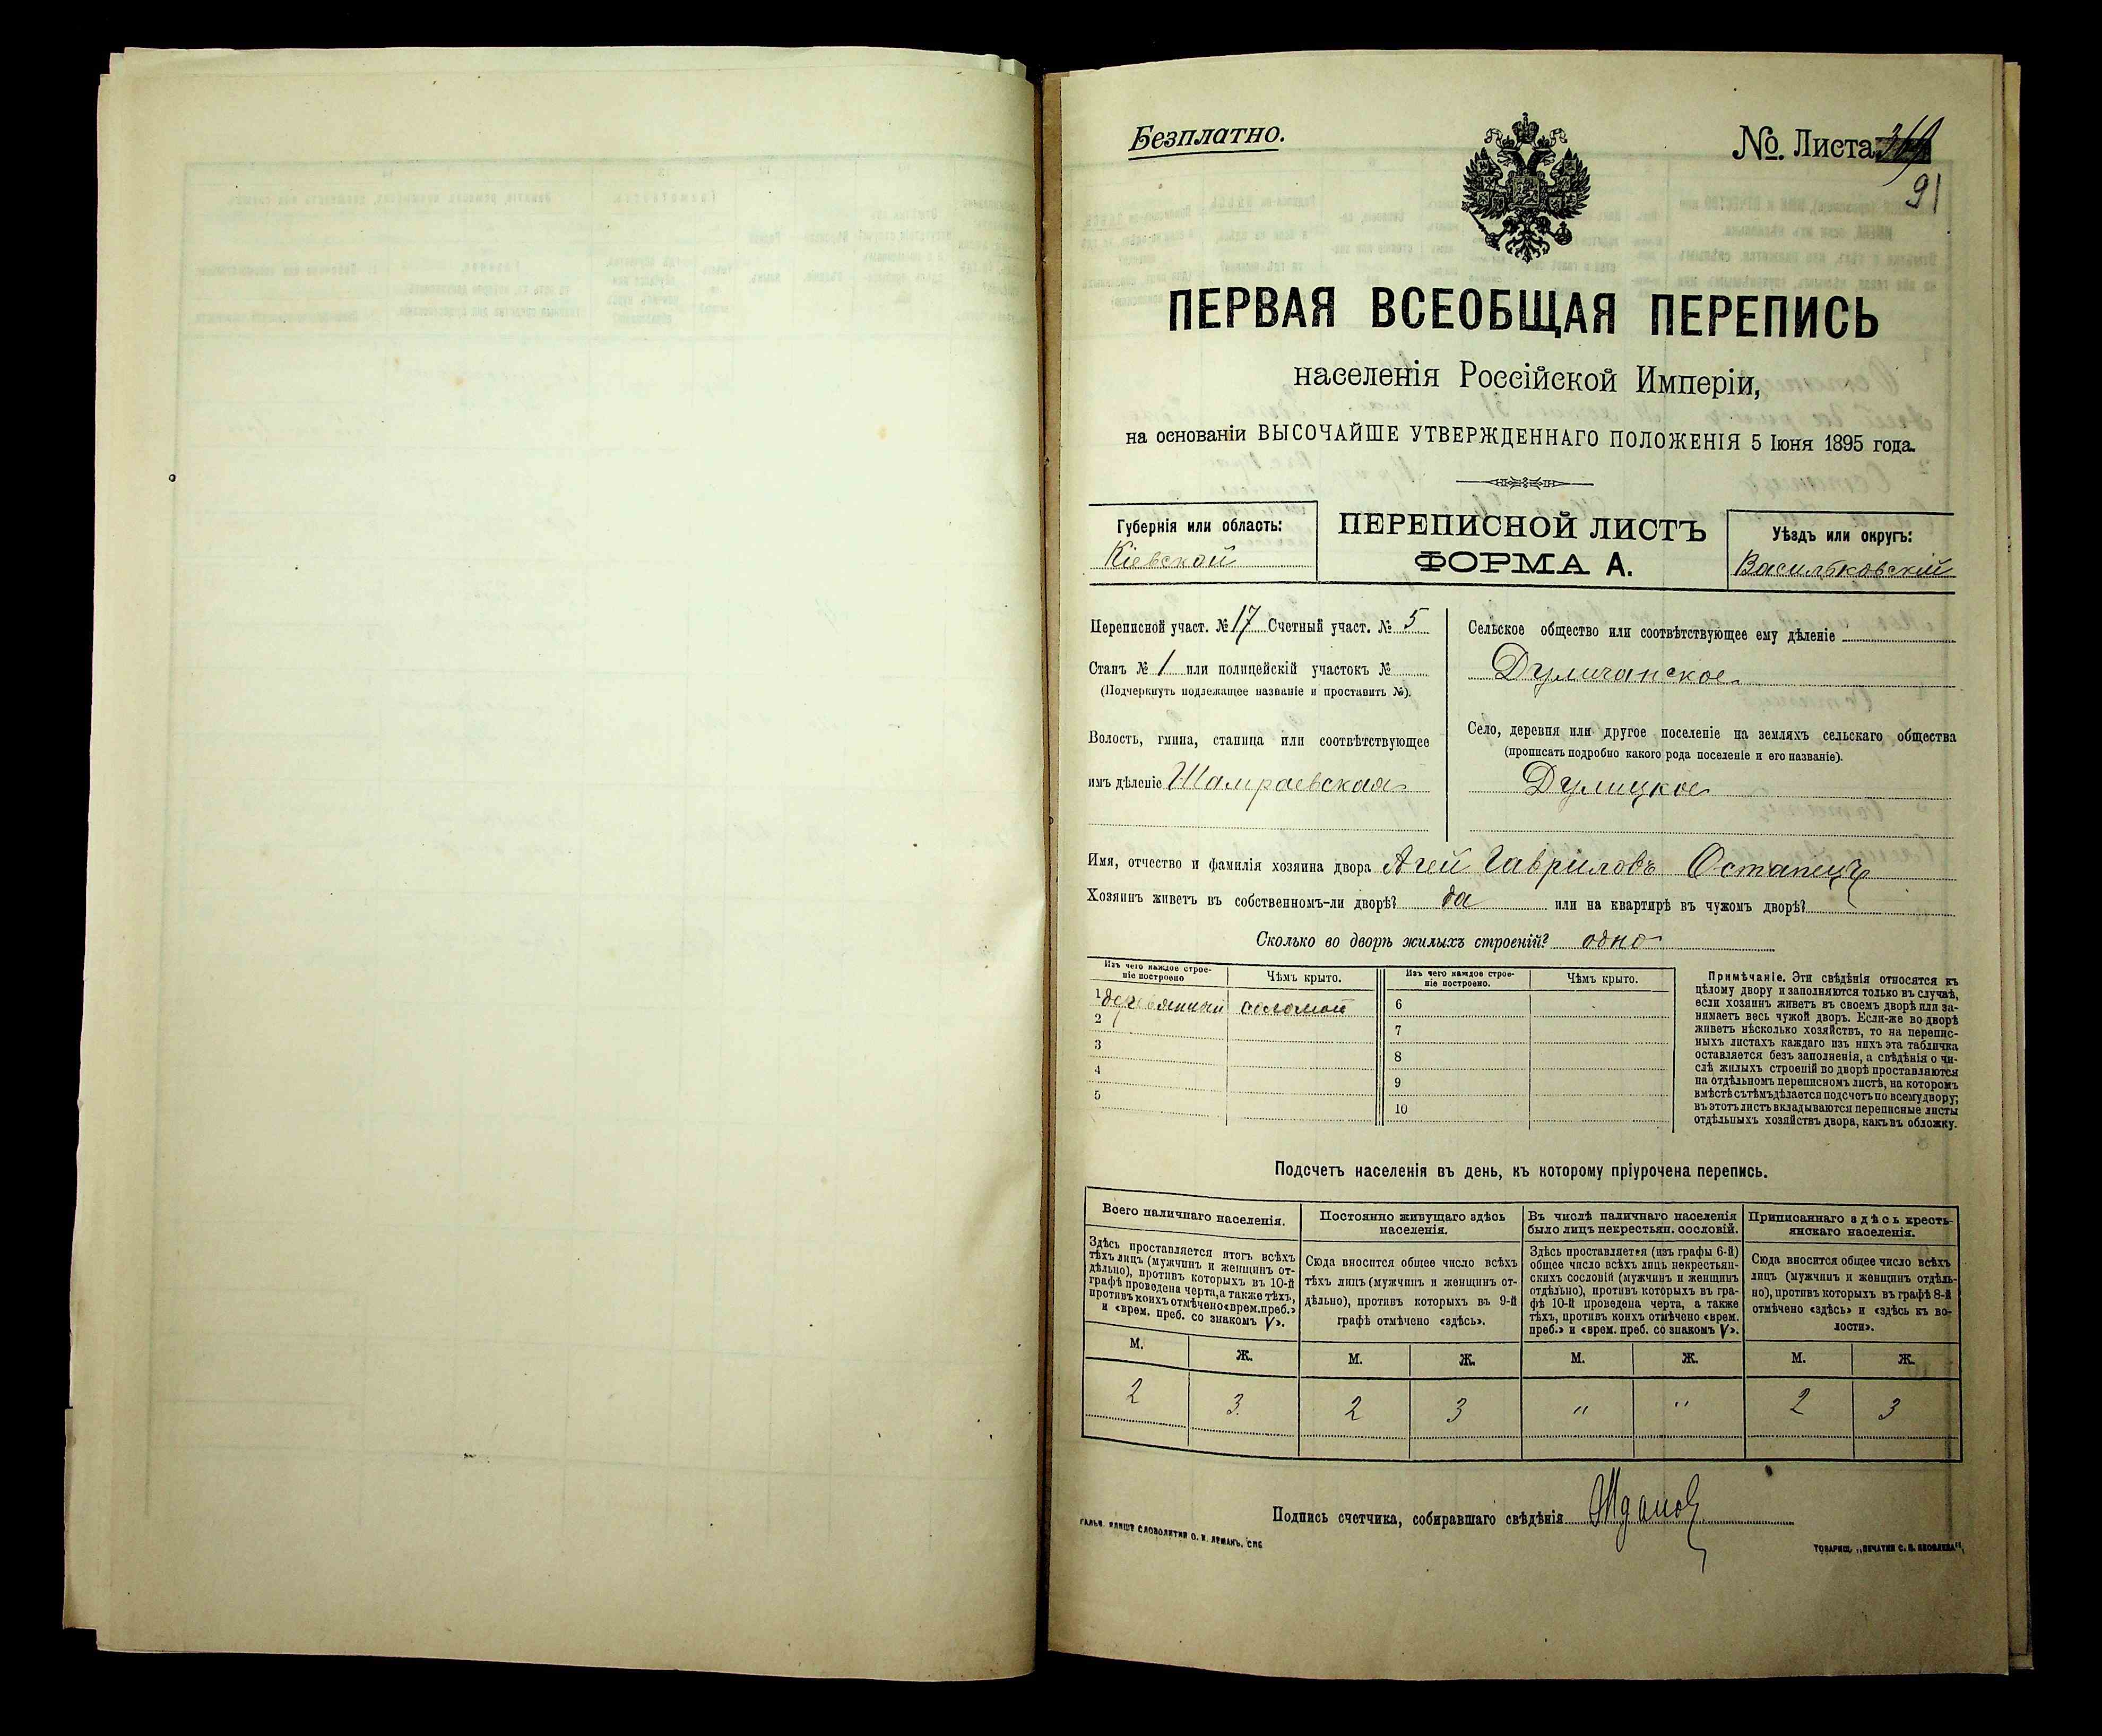 Безплатно.
№. Листа
91
ПЕРВАЯ ВСЕОБЩАЯ ПЕРЕПИСЬ
населенія Россійской Имперіи,
на основаніи ВЫСОЧАЙШЕ УТВЕРЖДЕННАГО ПОЛОЖЕНІЯ 5 Іюня 1895 года.
Губернія или область:
Кіевской
ПЕРЕПИСНОЙ ЛИСТЪ
ФОРМА А.
Уѣздъ или округъ:
Васильковскій
Переписной участ. № 17 Счетный участ. № 5
Станъ № 1 или полицейскій участокъ №
(Подчеркнуть подлежащее названіе и проставить №).
Волость, гмина, станица или соотвѣтствующее
имъ дѣленіе Шамраевская
Сельское общество или соотвѣтствующее ему дѣленіе
Дуличанское
Село, деревня или другое поселеніе на земляхъ сельскаго общества
(прописать подробно какого рода поселеніе и его названіе).
Дулицкое
Имя, отчество и фамилія хозяина двора Агей Гавриловъ Остапецъ
Хозяинъ живетъ въ собственномъ-ли дворѣ? да или на квартирѣ въ чужомъ дворѣ?
Сколько во дворѣ жилыхъ строеній? одно
Изъ чего каждое строе-
ніе построено
Чѣмъ крыто.
Изъ чего каждое строе-
ніе построено.
Чѣмъ крыто.
1 соломой 6
2 7
3 8
4 9
5 10
Примѣчаніе. Эти свѣдѣнія относятся къ
цѣлому двору и заполняются только въ случаѣ,
если хозяинъ живетъ въ своемъ дворѣ или за-
нимаетъ весь чужой дворъ. Если-же во дворѣ
живетъ нѣсколько хозяйствъ, то на перепис-
ныхъ листахъ каждаго изъ нихъ эта табличка
оставляется безъ заполненія, а свѣдѣнія о чи-
слѣ жилыхъ строеній во дворѣ проставляются
на отдѣльномъ переписномъ листѣ, на которомъ
вмѣстѣ съ тѣмъ дѣлается подсчетъ по всему двору;
въ этотъ листъ вкладываются переписные листы
отдѣльныхъ хозяйствъ двора, какъ въ обложку.
Подсчетъ населенія въ день, къ которому пріурочена перепись.
Всего наличнаго населенія.
Здѣсь проставляется итогъ всѣхъ
тѣхъ лицъ (мужчинъ и женщинъ от-
дѣльно), противъ которыхъ въ 10-й
графѣ проведена черта, а также тѣхъ,
противъ коихъ отмѣчено «врем. преб.»
и «врем. преб. со знакомъ V».
Постоянно живущаго здѣсь
населенія.
Сюда вносится общее число всѣхъ
тѣхъ лицъ (мужчинъ и женщинъ от-
дѣльно), противъ которыхъ въ 9-й
графѣ отмѣчено «здѣсь».
Въ числѣ наличнаго населенія
было лицъ некрестьян. сословій.
Здѣсь проставляется (изъ графы 6-й)
общее число всѣхъ лицъ некрестьян-
скихъ сословій (мужчинъ и женщинъ
отдѣльно), противъ которыхъ въ гра-
фѣ 10-й проведена черта, а также
тѣхъ, противъ коихъ отмѣчено «врем.
преб.» и «врем. преб. со знакомъ V».
Приписаннаго здѣсь кресть-
янскаго населенія.
Сюда вносится общее число всѣхъ
лицъ (мужчинъ и женщинъ отдѣль-
но), противъ которыхъ въ графѣ 8-й
отмѣчено «здѣсь» и «здѣсь къ во-
лости».
М. Ж. М. Ж. М. Ж. М. Ж.
2 3 2 3 " " 2 3
Подпись счетчика, собиравшаго свѣдѣнія
СЛОВОЛИТНИ О. И. ЛЕМАНЪ, СПБ
ТОВАРИЩ. „ПЕЧАТНЯ С. П. ЯКОВЛЕВА“,